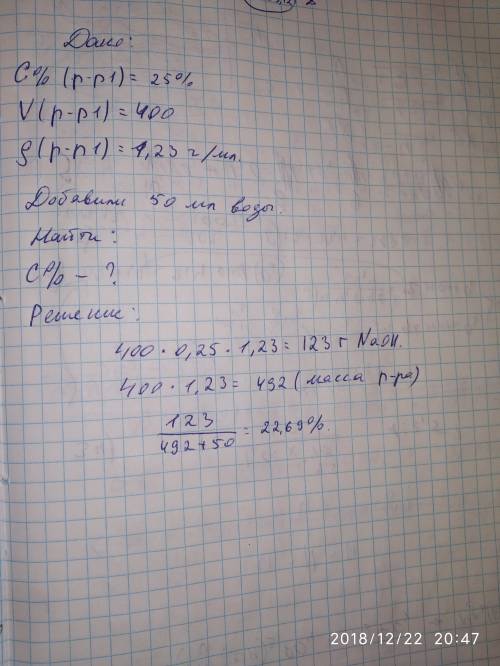 Дано:
C% (р-р1) = 25%
V(р-р1) = 400
ρ(р-р1) = 1,23 г/мл.
Добавили 50 мл воды.
Найти:
C% - ?
Решение:
400 · 0,25 · 1,23 = 123 г NaOH.
400 · 1,23 = 492 (масса р-ра)
123
492+50 = 22,69%.
2018/12/22 20:47